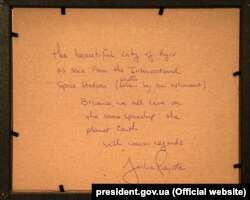 The beautiful city of Kyiv
as seen from the International
photo
Space Station (taken by an astronaut)
Because we all live on
the same spaceship the
planet Earth
with warm regards
Julie Payette
president.gov.ua (Official website)